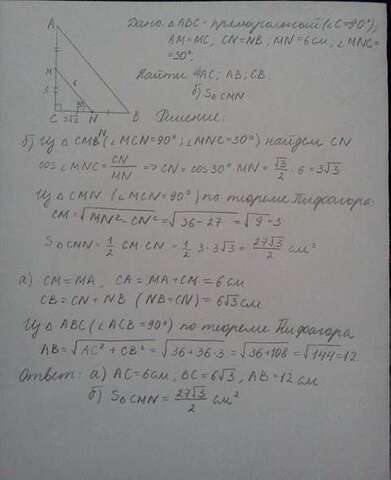 A
Дано: △ABC - прямоугольный (∠C=90°),
AM=MC, CN=NB; MN=6см; ∠MNC=
=30°.
M
6
3
30°
C 3√3 N B
Найти: а) AC; AB; CB
б) S△CMN
Решение:
б) Из △CMN (∠MCN=90°; ∠MNC=30°) найдем CN
cos∠MNC = CN/MN => CN = cos30°·MN = √3/2 · 6 = 3√3
Из △CMN (∠MCN=90°) по теореме Пифагора:
CM = √MN²-CN² = √36-27 = √9 = 3
S△CMN = 1/2 CM·CN = 1/2 3·3√3 = 27√3/2 см²
а) CM=MA, CA=MA+CM=6см
CB=CN+NB (NB=CN)=6√3см
Из △ABC (∠ACB=90°) по теореме Пифагора
AB = √AC²+CB² = √36+36·3 = √36+108 = √144 = 12
Ответ: а) AC=6см; BC=6√3, AB=12см
б) S△CMN = 27√3/2 см²